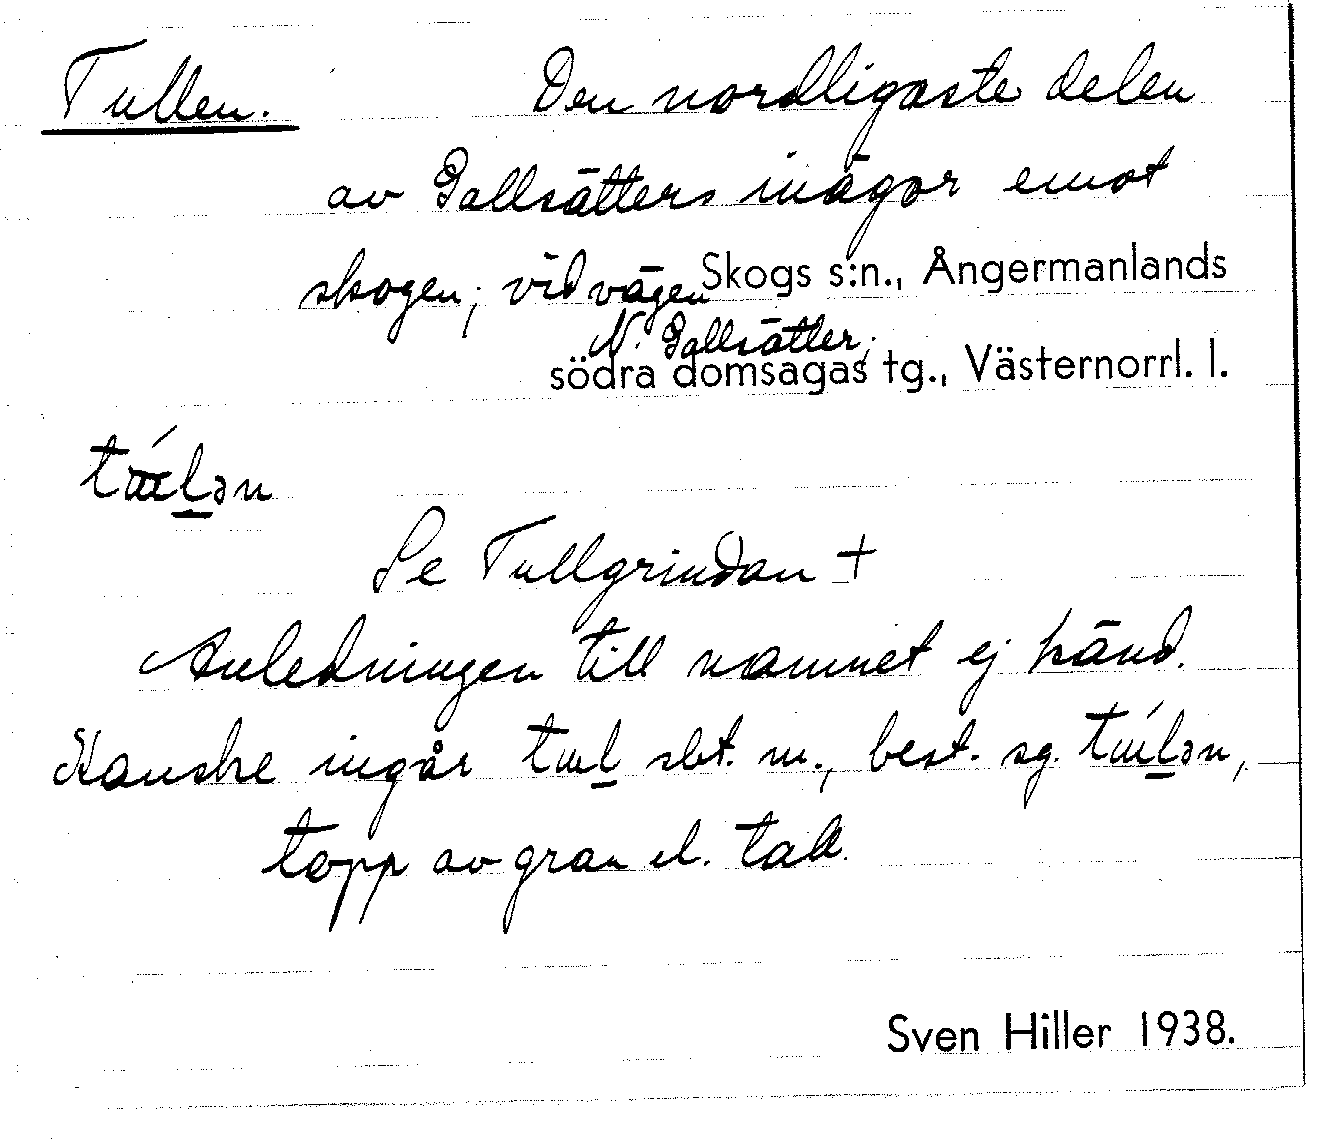 Tullen. Den nordligaste delen
av Gallsätters inägor emot
skogen; vid vägen
Skogs s:n., Ångermanlands
N. Gallsätter,
södra domsagas tg., Västernorrl. l.
Se Tullgrindan +
Anledningen till namnet ej känd.
Kanske ingår sbt. m., best. sg.
topp av gran el. tall.
Sven Hiller 1938.